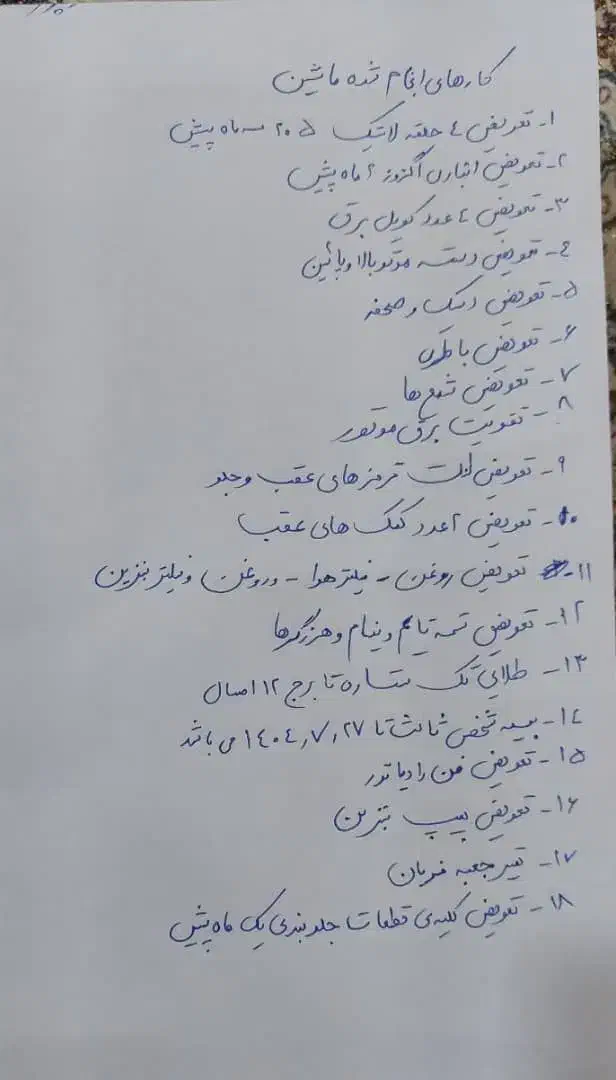 کارهای انجام شده ماشین
۱- تعویض ٤ حلقه لاستیک ۲۰۵ سه ماه پیش
۲- تعویض انباری اگزوز ۲ ماه پیش
۳- تعویض ٤ عدد کویل برق
٤- تعویض دسته موتور بالا و پائین
۵- تعویض دیسک و صحفه
۶- تعویض باطری
۷- تعویض شمع ها
۸- تقویت برق موتور
۹- تعویض لنت ترمزهای عقب و جلو
۱۰- تعویض ۲ عدد کمک های عقب
۱۱- تعویض روغن - فیلتر هوا - و روغن و فیلتر بنزین
۱۲- تعویض تسمه تایم دینام و هرزگردها
۱۳- طلایی تک ستاره تا برج ۱۲ امسال
۱٤- بیمه شخص ثالث تا ۱٤۰٤٫۷٫۲۷ می باشد
۱۵- تعویض فن رادیاتور
۱۶- تعویض پمپ بنزین
۱۷- تعمیر جعبه فرمان
۱۸- تعویض کلیه ی قطعات جلوبندی یک ماه پیش